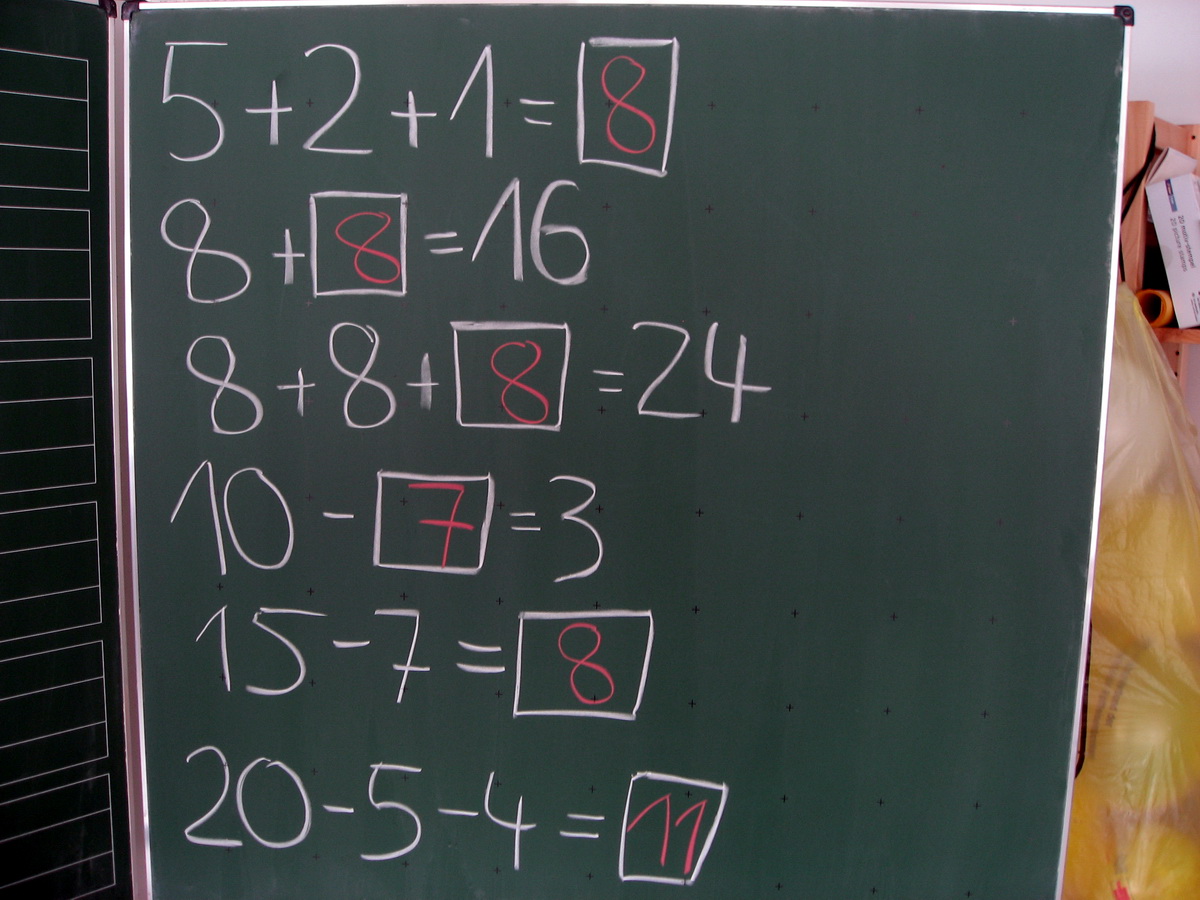 5+2+1=8
8+8=16
8+8+8=24
10-7=3
15-7=8
20-5-4=11